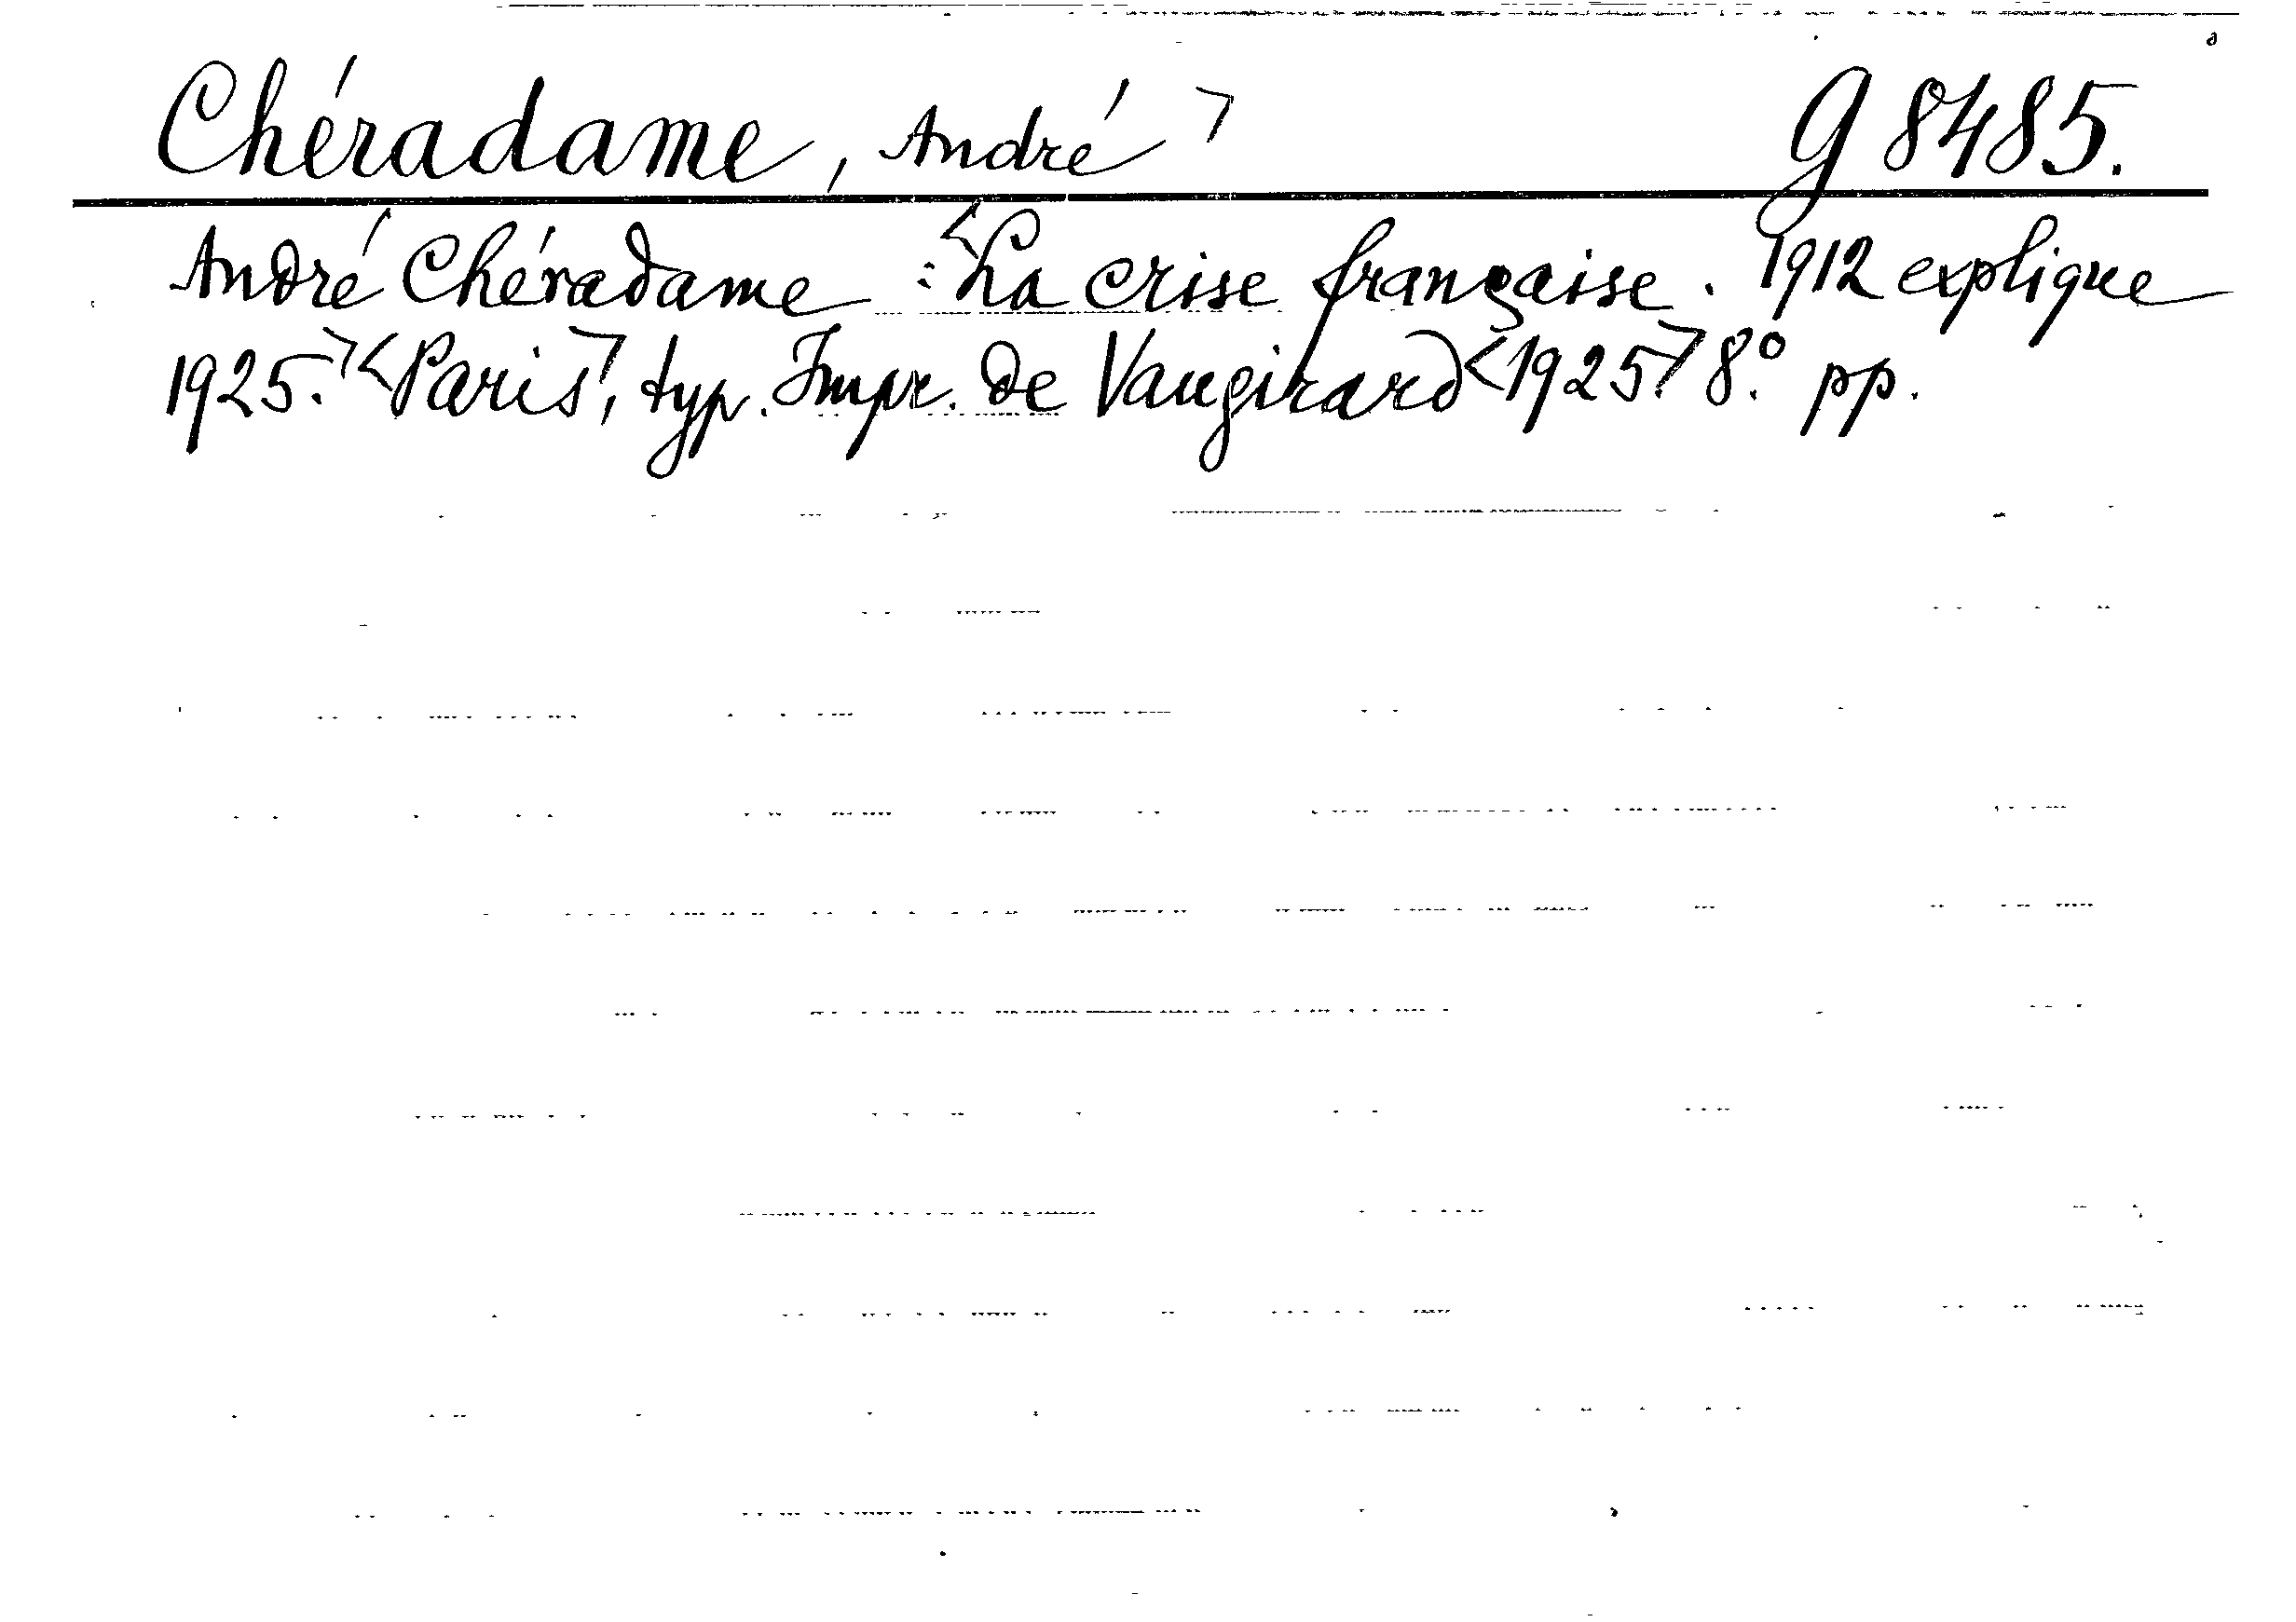 Chéradame, André> g 8485.
André Chéradame : <La crise française. 1912 explique
1925.> <Paris>, typ. Impr. de Vaugirard <1925> 8.° pp.